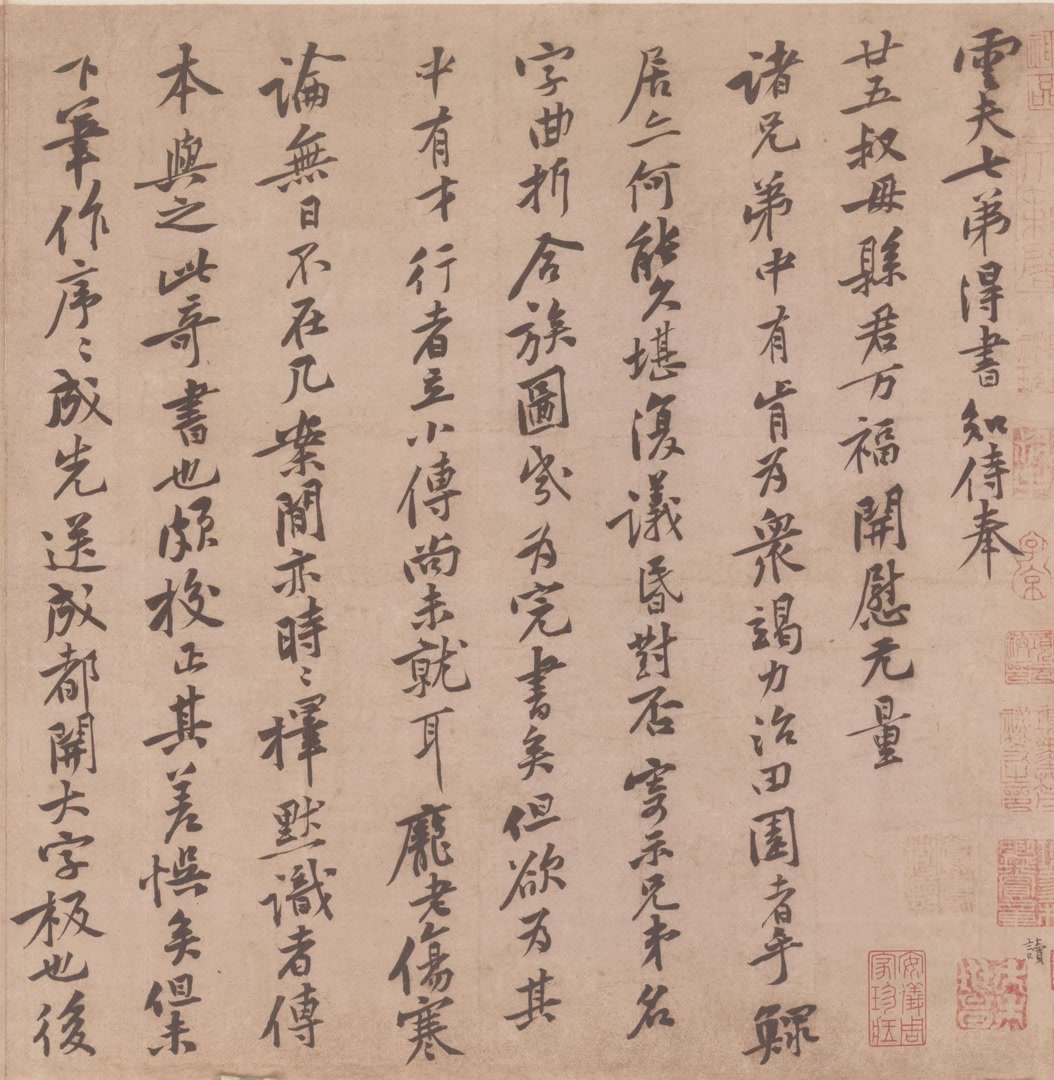 雲夫七弟得書知侍奉
廿五叔母縣君万福開慰无量
諸兄弟中有肯为衆竭力治田園者乎鰥
居亦何能久堪復議昏對否寄示兄弟名
字曲折合族圖岁为完書矣但欲为其
中有才行者立小傳尚未就耳龐老傷寒
論無日不在几案間亦時〻擇默識者傳
本與之此奇書也頗校正其差悞矣但未
下筆作序〻成先送成都開大字板也後
讀
安儀周
家珍藏